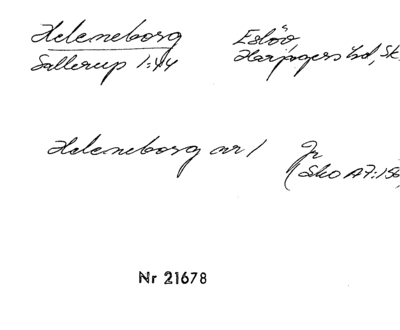 Heleneborg Eslöv
Sallerup 1:44 Harjagers hd, Sk
Heleneborg nr 1 Gr
(Sko A7:156
Nr 21678